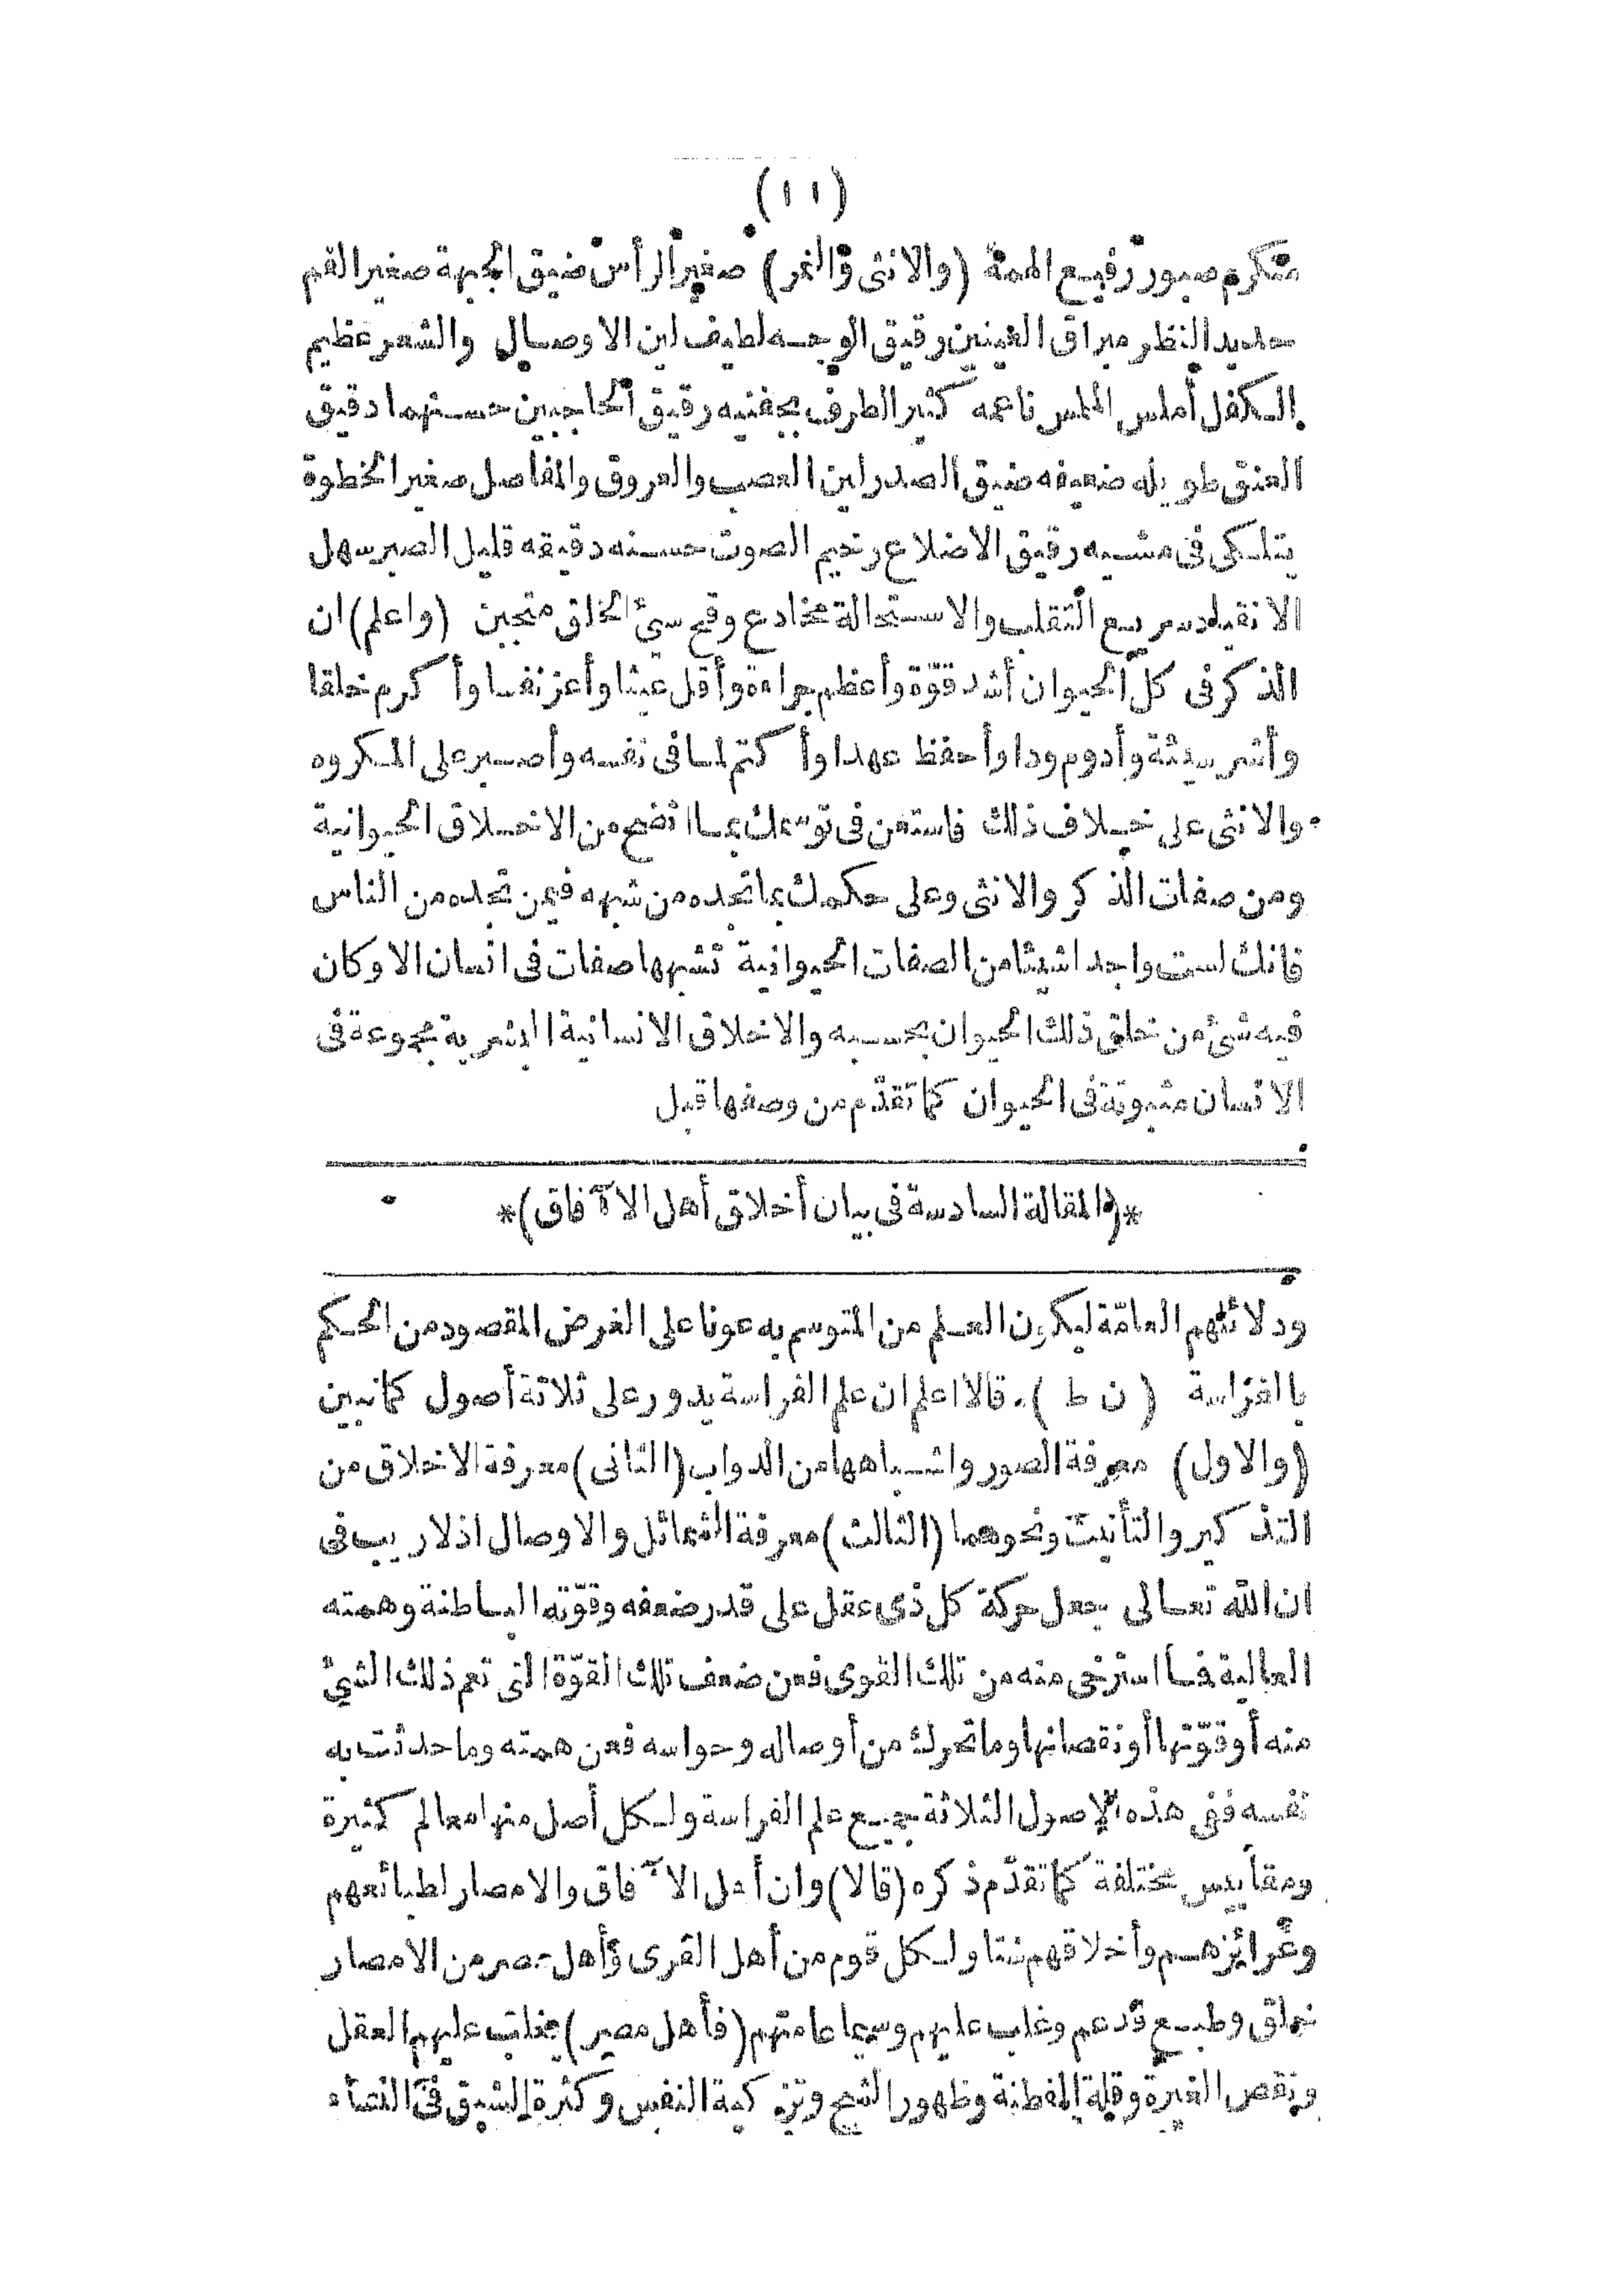 (١١)
متكرم صبور رفيع الهمة (والانثى والنمر) صغير الرأس ضيق الجبهة صغير الفم
حديد النظر براق العينين رقيق الوجه لطيف لين الاوصال والشعر عظيم
الكفل أملس الملمس ناعمه كثير الطرف بجفنيه رقيق الحاجبين حسنهما دقيق
العنق طويله ضعيفه ضيق الصدر لين العصب والعروق والمفاصل صغير الخطوة
يتلكى فى مشيه رقيق الاضلاع رخيم الصوت حسنه دقيقه قليل الصبر سهل
الانقياد سريع التقلب والاستحالة مخادع وقح سيئ الخلق متجبن (واعلم) ان
الذكر فى كل الحيوان أشد قوّة وأعظم جراءة وأقل عبثا وأعز نفسا وأكرم خلقا
وأدوم ودا وأحفظ عهدا وأكتم لما فى نفسه وأصبر على المكروه
والانثى على خلاف ذلك فاستعن فى توسمك بما اتضح من الاخلاق الحيوانية
ومن صفات الذكر والانثى وعلى حكمك بما تجده من شبهه فيمن تجده من الناس
فانك لست واجدا شيئا من الصفات الحيوانية تشبهها صفات فى انسان الا وكان
فيه شئ من خلق ذلك الحيوان بحسبه والاخلاق الانسانية البشرية مجموعة فى
الانسان مثبوتة فى الحيوان كما تقدّم من وصفها قبل
*(المقالة السادسة فى بيان أخلاق أهل الآفاق)*
ودلائلهم العامّة ليكون العلم من المتوسم به عونا على الغرض المقصود من الحكم
بالفراسة (ن ط) قالا اعلم ان علم الفراسة يدور على ثلاثة أصول كما نبين
(والاول) معرفة الصور واشباهها من الدواب (الثانى) معرفة الاخلاق من
التذكير والتأنيث ونحوهما (الثالث) معرفة الشمائل والاوصال اذ لا ريب فى
ان الله تعالى جعل حركة كل ذى عقل على قدر ضعفه وقوّته الباطنة وهمته
العالية فما استرخى منه من تلك القوى فمن ضعف تلك القوّة التى تعم ذلك الشئ
منه أو قوّتها أو نقصانها وما تحرك من أوصاله وحواسه فعن همته وما حدثت به
نفسه ففى هذه الاصول الثلاثة جميع علم الفراسة ولكل أصل منها معالم كثيرة
ومقاييس مختلفة كما تقدّم ذكره (قالا) وان أهل الآفاق والامصار لطبائعهم
وغرائزهم وأخلاقهم نبتا ولكل قوم من أهل القرى وأهل مصر من الامصار
خلق وطبع قد عم وغلب عليهم وسيما عامتهم (فأهل مصر) يغلب عليهم العقل
ونقص الغيرة وقلة الفطنة وظهور الشح وتزكية النفس وكثرة الشبق فى النساء